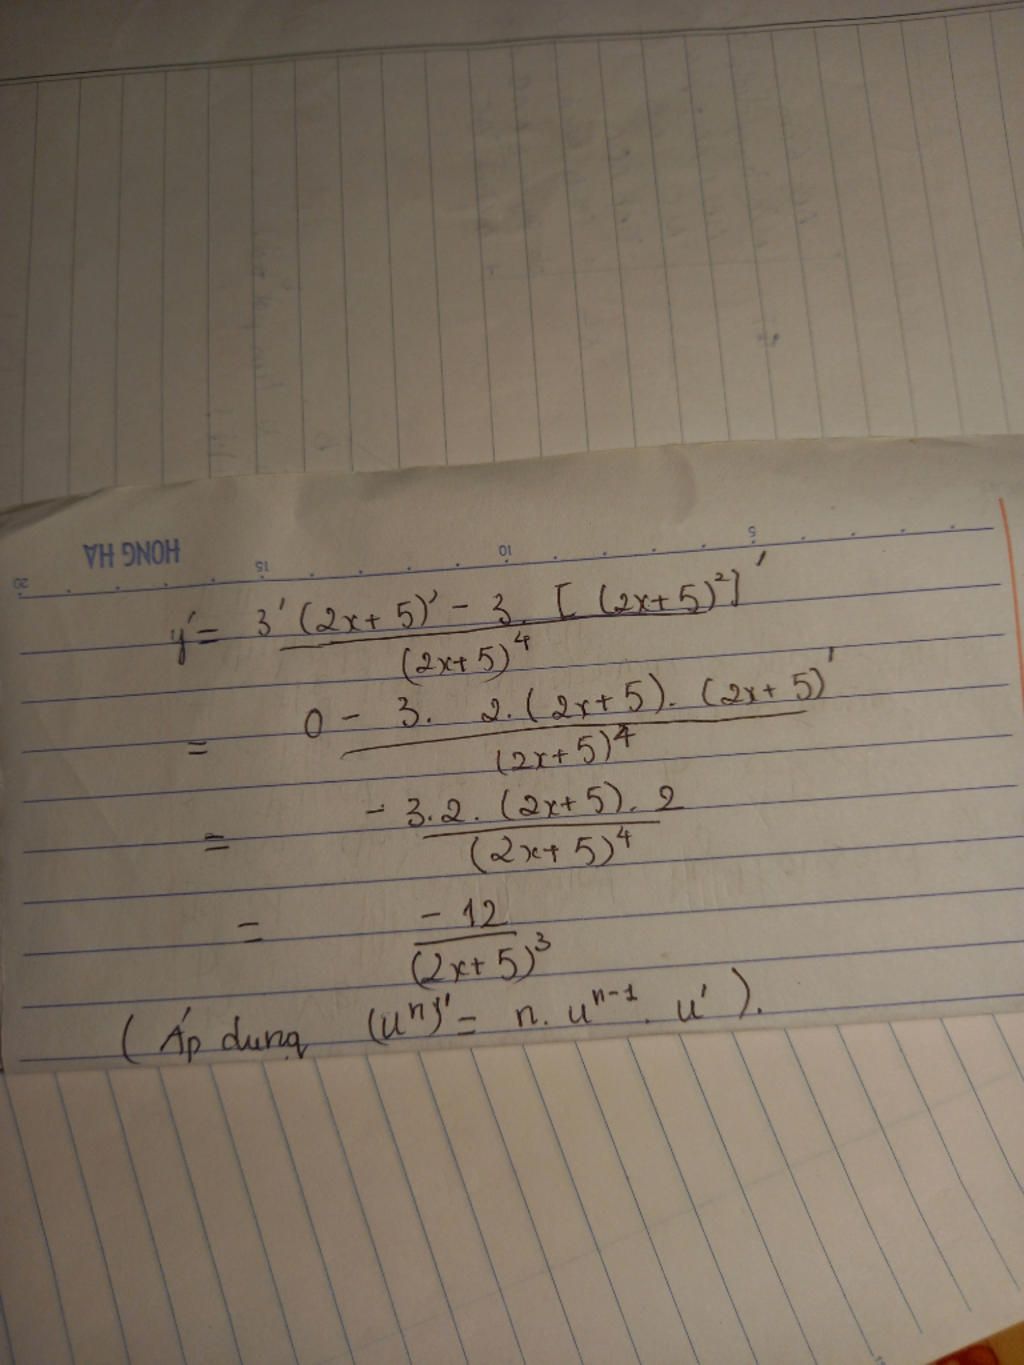 HONG HA
20 15 10 5
y' = 3'(2x+5)' - 3. [(2x+5)²]' / (2x+5)⁴
= 0 - 3. 2.(2x+5). (2x+5)' / (2x+5)⁴
= - 3.2. (2x+5). 2 / (2x+5)⁴
= - 12 / (2x+5)³
( Áp dụng (uⁿ)' = n. uⁿ⁻¹. u' ).